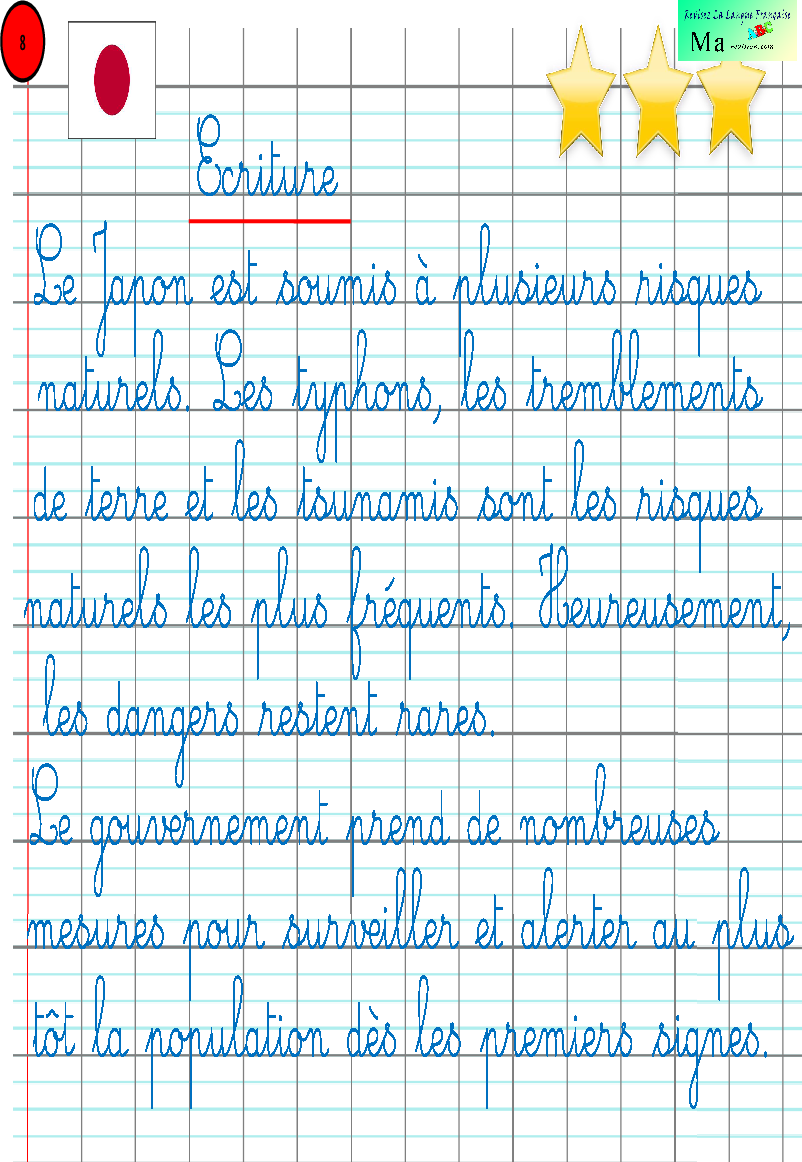 8
Revisez La Langue Française
ABC
Ma
Ecriture
Le Japon est soumis à plusieurs risques
naturels. Les typhons, les tremblements
de terre et les tsunamis sont les risques
naturels les plus fréquents. Heureusement,
les dangers restent rares.
Le gouvernement prend de nombreuses
mesures pour surveiller et alerter au plus
tôt la population dès les premiers signes.